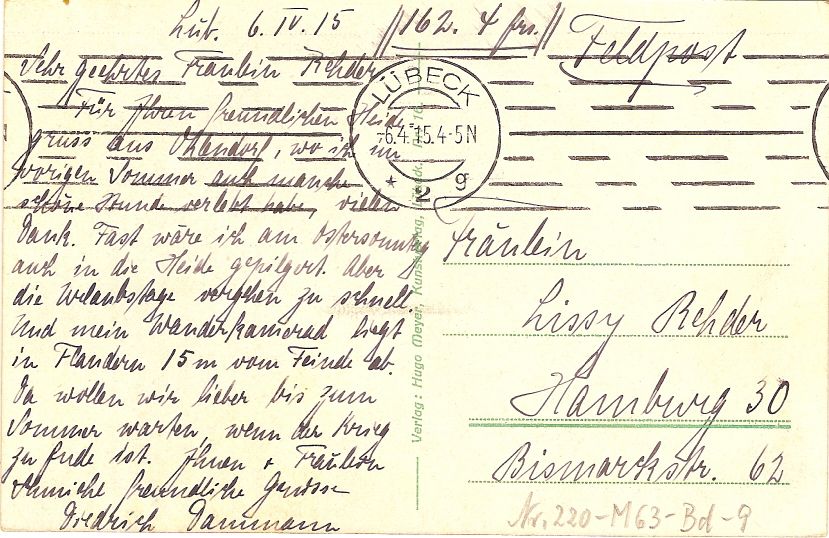 Lüb. 6. IV. 15 //162. 4 frs.//
Feldpost
Sehr geehrtes Fräulein Rehder
Für Ihren freundlichen Heide
gruss aus Ohlendorf, wo ich im
vorigen Sommer auch manche
schöne Stunde verlebt habe, vielen
Dank. Fast wäre ich am Ostersonntag
auch in die Heide gepilgert. Aber
die Urlaubstage vergehen zu schnell.
Und mein Wanderkamerad liegt
in Flandern 15 m vom Feinde ab.
Da wollen wir lieber bis zum
Sommer warten, wenn der Krieg
zu Ende ist. Ihnen + Fräulein
freundliche Grüsse
Diedrich Dammann
LÜBECK
-6.4.15.4-5N
* 2 g
Verlag: Hugo Meyer, Kunstverlag,
Fräulein
Lissy Rehder
Hamburg 30
Bismarckstr. 62
Nr. 220-M63-Bd-9